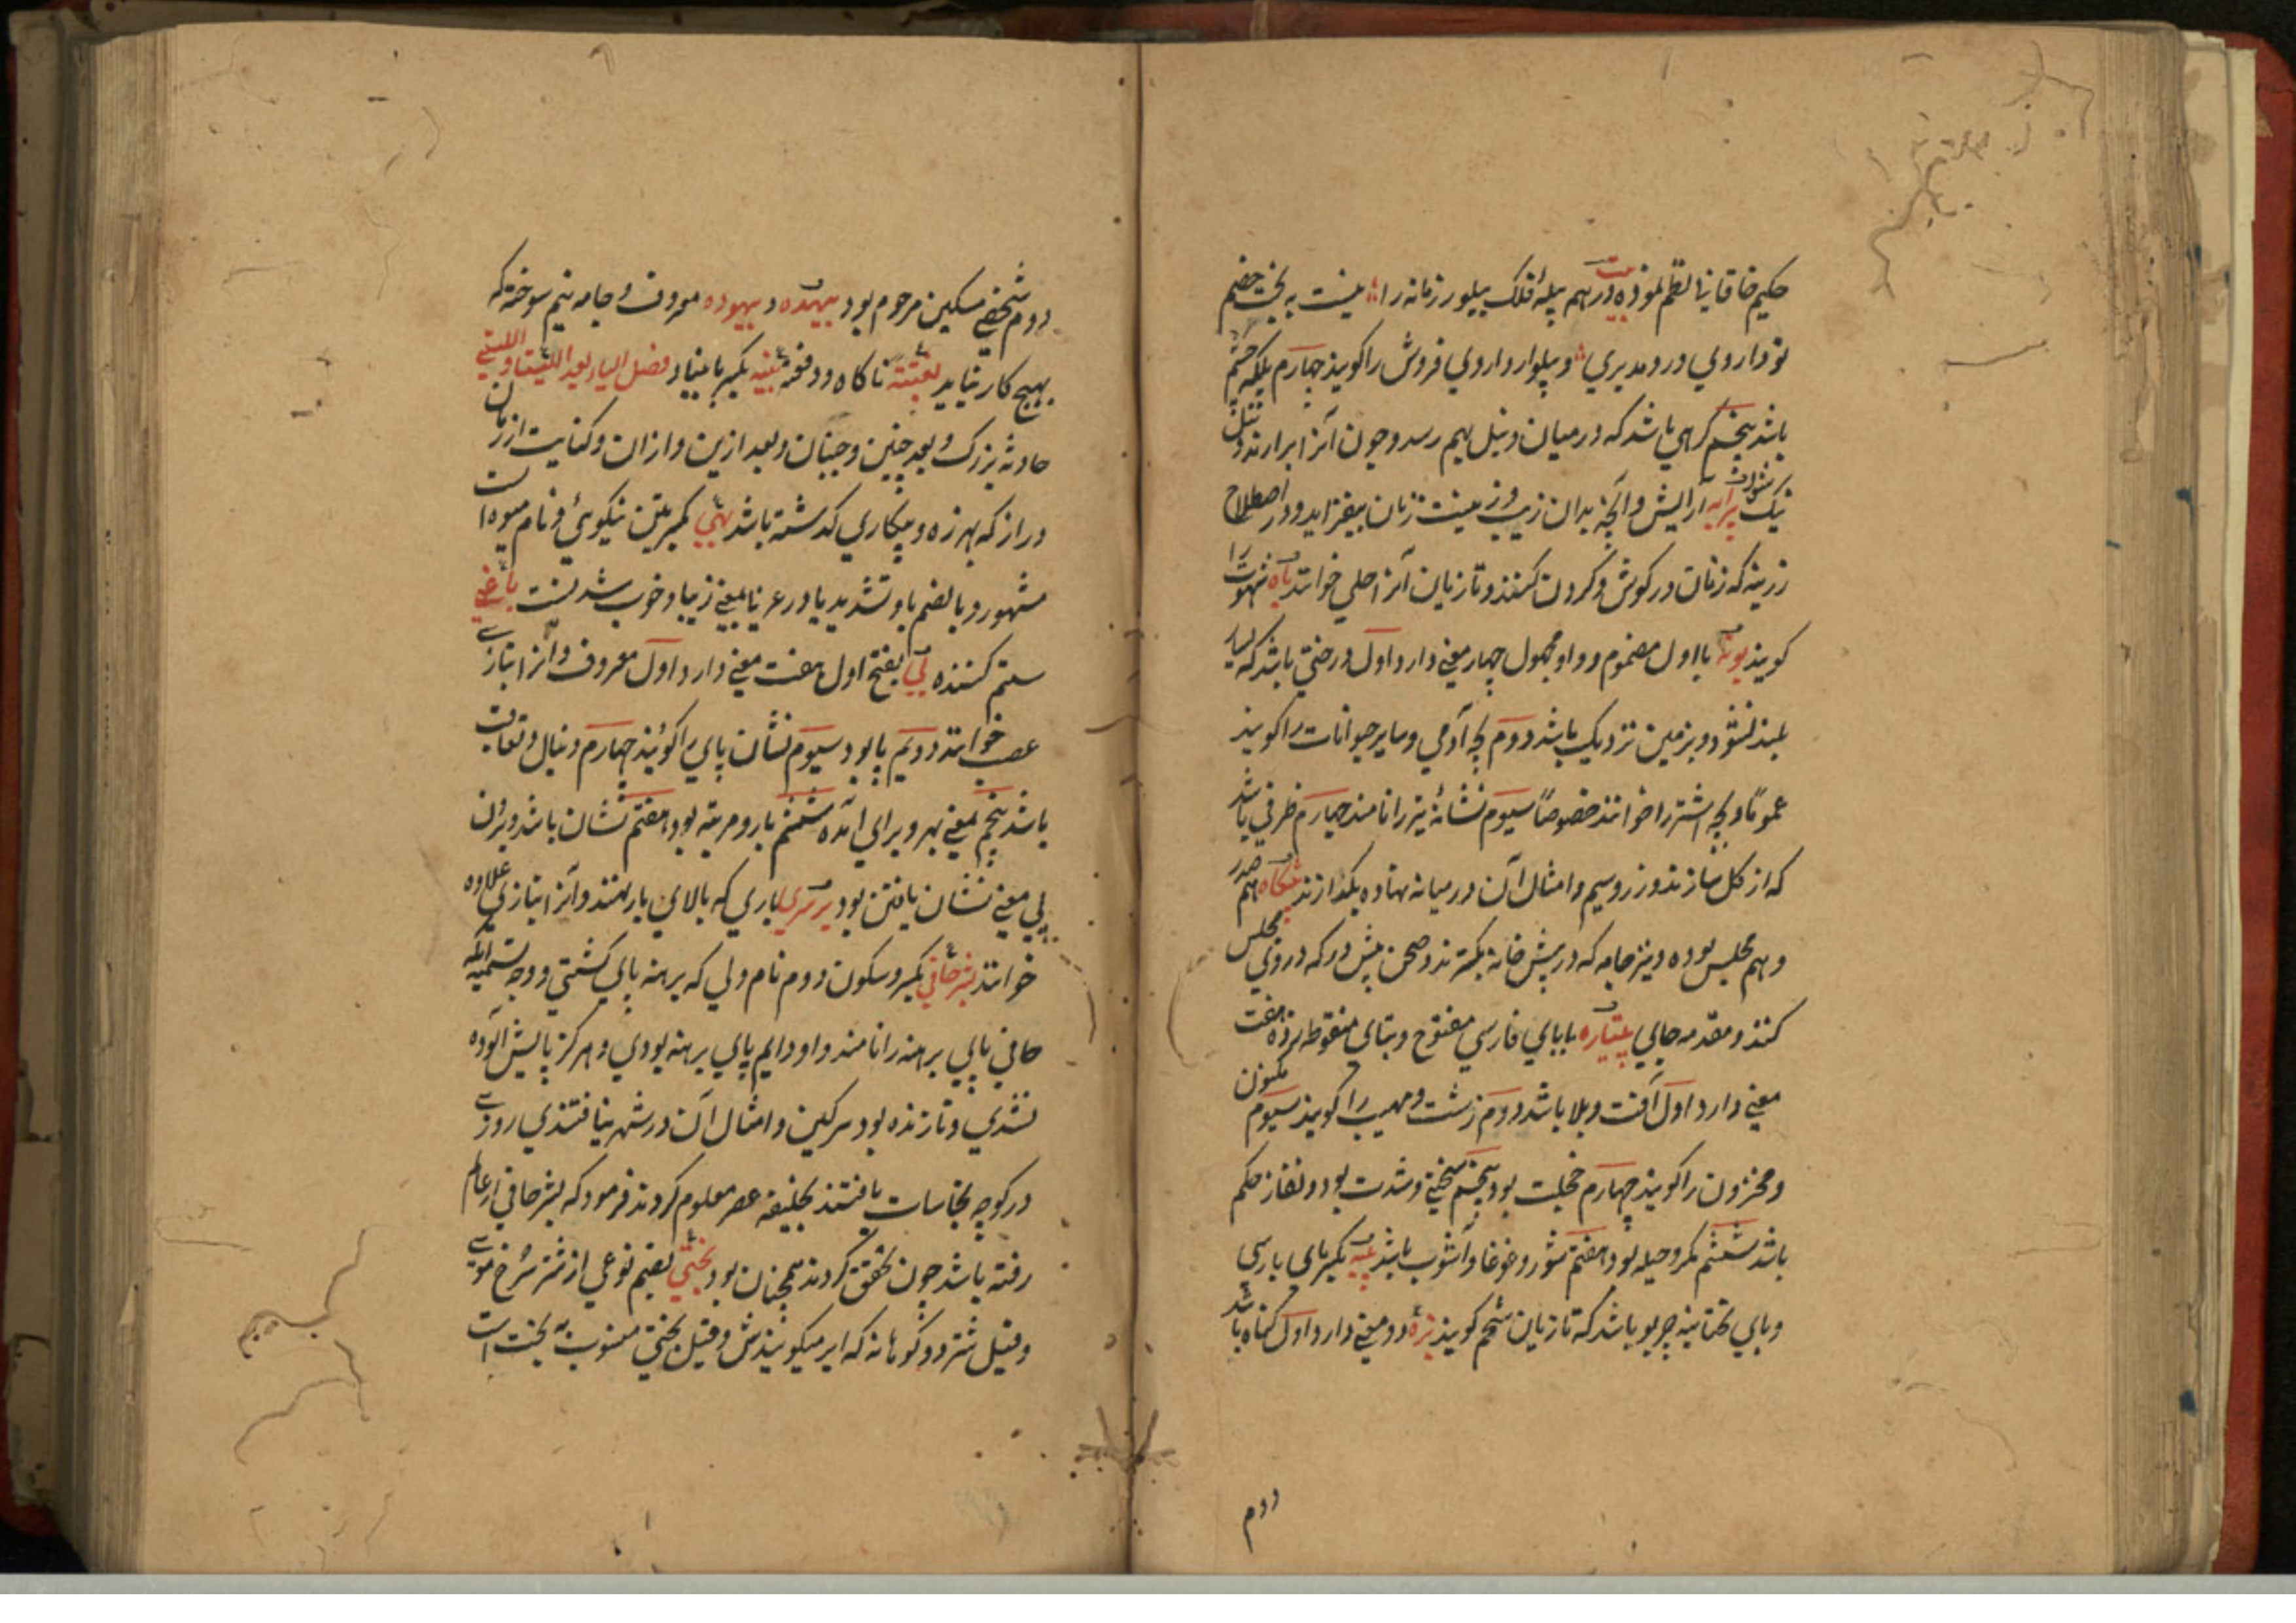 حکیم خاقانی نظم نموده بیت در هم پیلهٔ فلک پیلور زمانه را نیست به بخت خصم
تو داروی درد مدبری و پیلوار داروی فروش را گویند چهارم پلک چشم
باشد پنجم گرهی باشد که در میان دنبل بهم رسد و چون آنرا برارند دنبل
نیک شود پیرایه آرایش و آنچه بدان زیب و زینت زنان بیفزاید و در اصطلاح
زرینه که زنان در گوش و گردن کنند و تازیان آنرا حلی خوانند باه شهوت را
گویند بوته با اول مضموم و واو مجهول چهار معنی دارد اول درختی باشد که بسیار
بلند نشود و بزمین نزدیک باشد دوم بچه آدمی و سایر حیوانات را گویند
عموماً و بچه اشتر را خوانند خصوصاً سیوم نشانهٔ تیر را نامند چهارم ظرفی باشد
که از گل سازند و زر و سیم و امثال آن در میانه نهاده بگدازند پیشگاه هم صدر
و هم مجلس بوده و نیز جامه که در پیش خانه بگسترند و صحن پیش در که در وی مجلس
کنند و مقدمه جای پتیاره با بای فارسی مفتوح و بتای منقوطه زده هفت
معنی دارد اول آفت و بلا باشد دوم زشت و مهیب را گویند سیوم
و محزون را گویند چهارم خجلت بود پنجم سختی و شدت بود و نفاز حکم
باشد ششم مکر و حیله بود هفتم شور و غوغا و آشوب باشد پیه بکسر بای پارسی
و بای تحتانیه چربو باشد که تازیان شحم گویند بزه دو معنی دارد اول گناه باشد
دوم
دوم شخصی مسکین مرحوم بود بیهده و بیهوده معروف و جامه نیم سوخته که
بهیچ کار نیاید بغتة ناگاه و دفعة بنیه بکسر با بنیاد فصل الیا بعد اللتیا و اللتی
حادثه بزرگ و بعد چنین و چنان و بعد ازین و ازان و کنایت از زمان
دراز که بهرزه و بیکاری گذشته باشد بهی بکسرتین نیکوئی و نام میوه است
مشهور و بالضم با و تشدید یا در عربی بمعنی زیبا و خوب شدنست باغی
ستم کننده پی بفتح اول هفت معنی دارد اول معروف و آنرا بتازی
عصب خوانند دویم پا بود سیوم نشان پای را گویند چهارم دنبال و تعاقب
باشد پنجم بمعنی بهر و برای آمده ششم بار و مرتبه بود هفتم نشان باشد و بران
پی معنی نشان یافتن بود برسری باری که بالای بار نهند و آنرا بتازی علاوه
خوانند بشر حافی بکسر و سکون دوم نام ولی که برهنه پای گشتی و وجه تسمیه آنکه
حافی پای برهنه را نامند و او دایم پای برهنه بودی و هرگز پایش آلوده
نشدی و تا زنده بود سرگین و امثال آن در شهر نیافتندی روزی
در کوچه نجاسات یافتند بخلیفه عصر معلوم کردند فرمود که بشر حافی از عالم
رفته باشد چون تحقق کردند همچنان بود بختی بضم نوعی از شتر سرخ موی
و قیل شتر دو کوهانه که ابر میگویندش و قیل بختی منسوب به بخت است